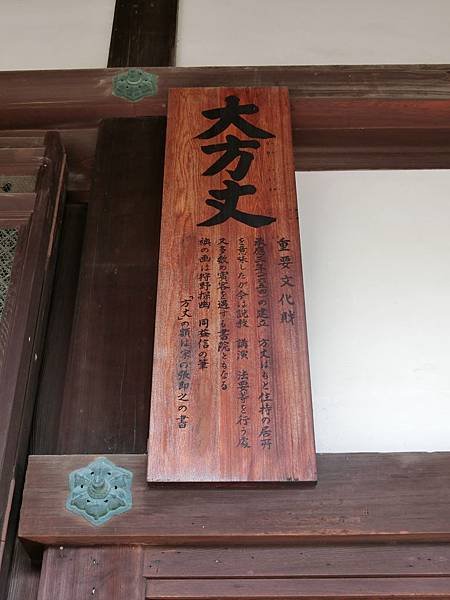 大方丈
重要文化財
承應三年(一六五四)の建立 方丈はもと住持の居所
を意味したが今は説教 講演 法要等を行う處
又多数の賓客を遇する書院ともなる
襖の画は狩野探幽 同益信の筆
「方丈」の額は宋の張即之の書